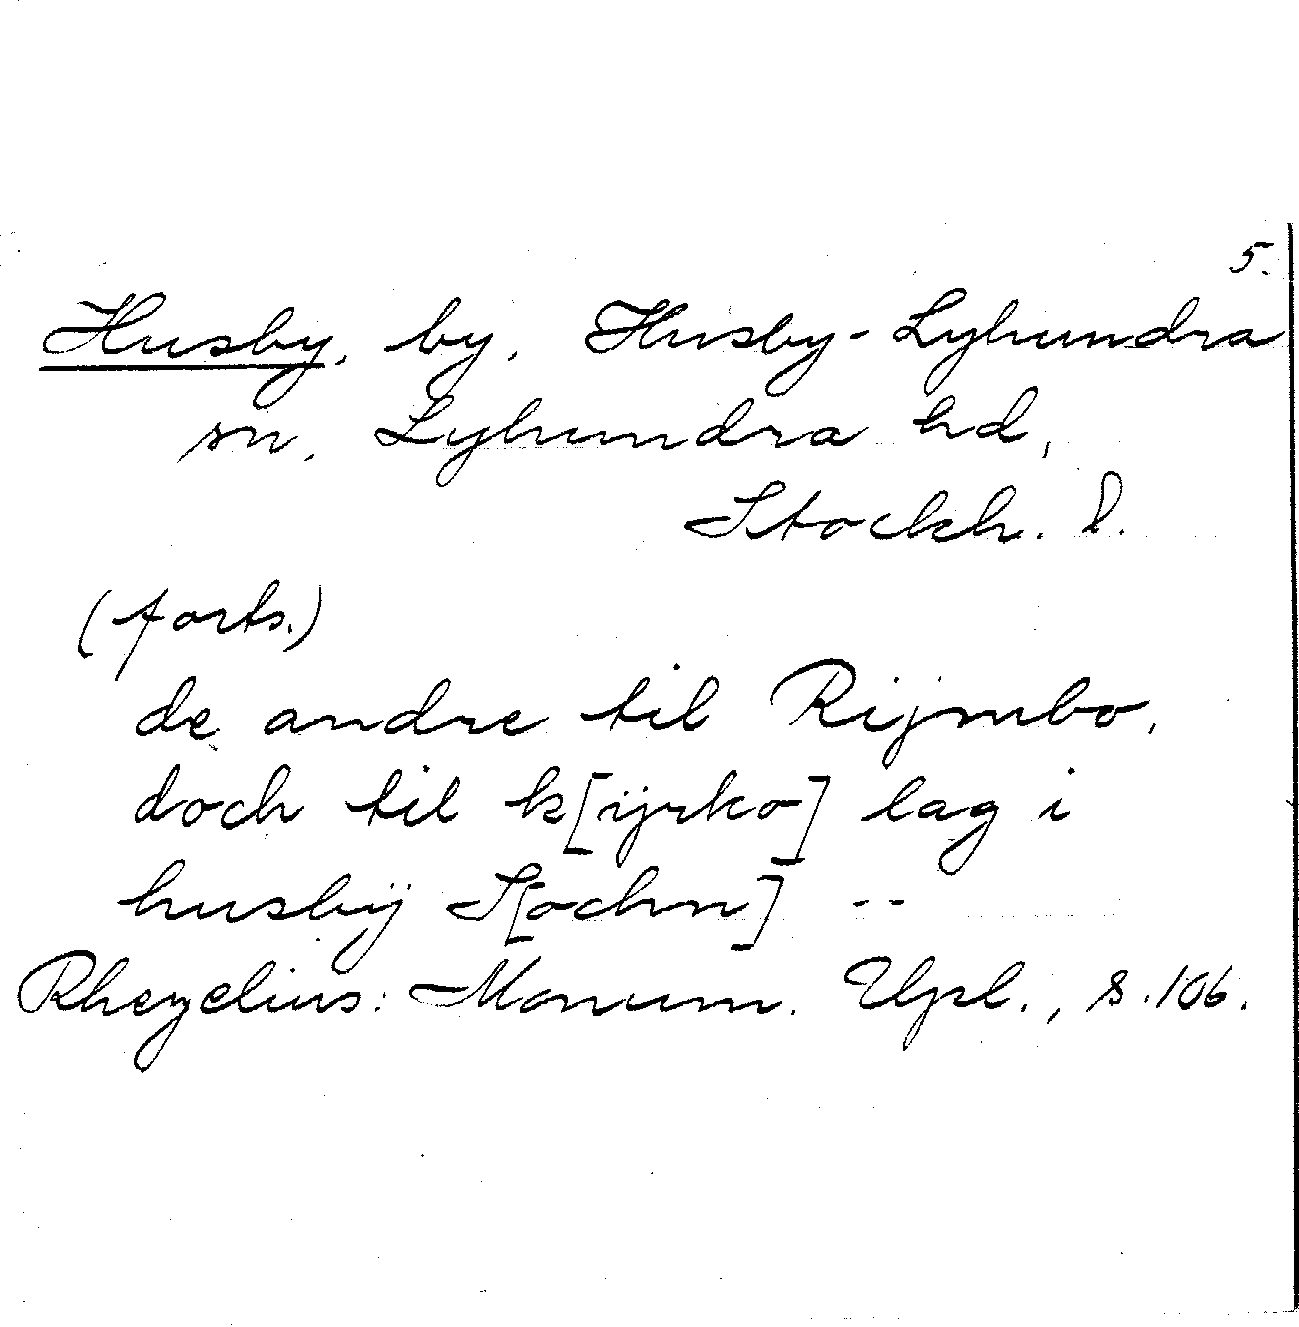 5.
Husby, by, Husby-Lyhundra
sn, Lyhundra hd,
Stockh. l.
(forts.)
de andre til Rijmbo,
doch til k[ijrko] lag i
husbij S[ochn] --
Rhezelius: Monum. Upl., s. 106.